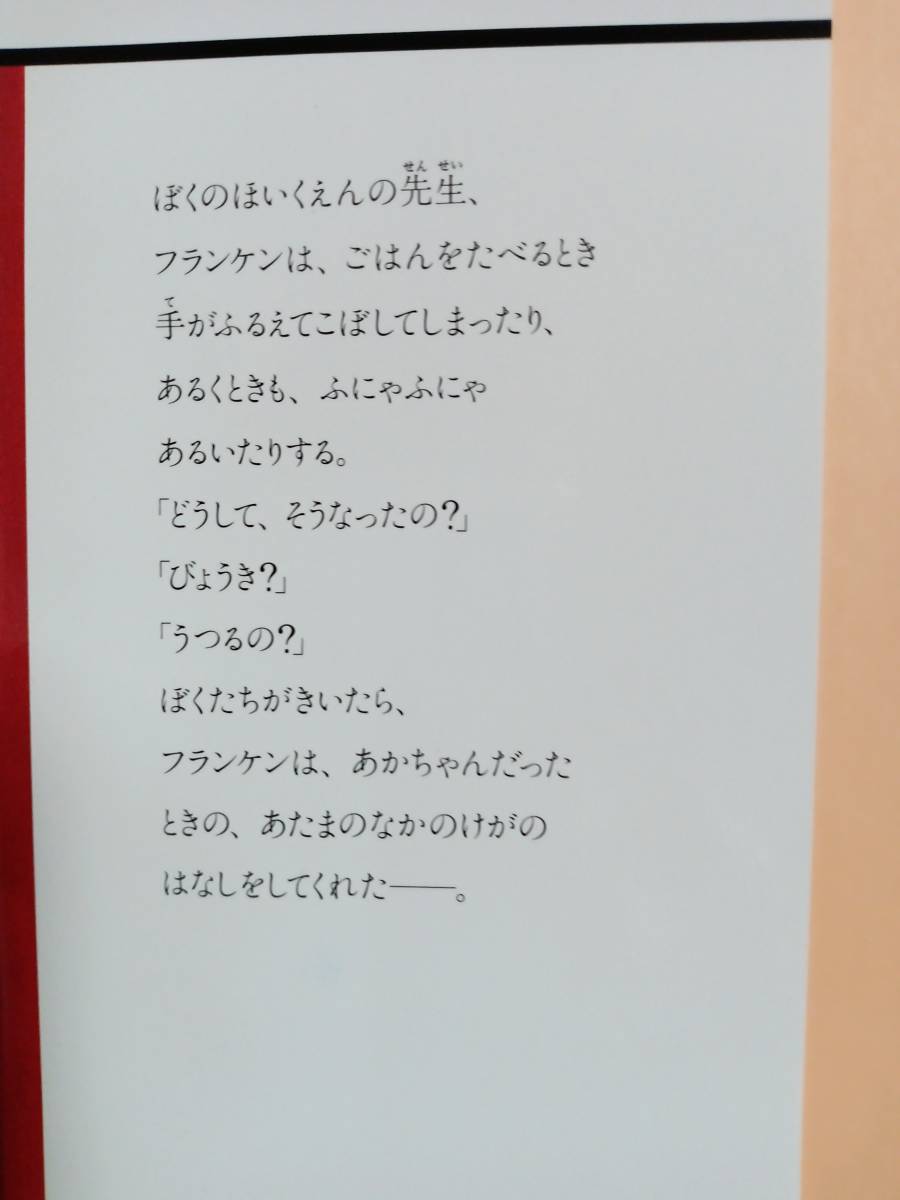 ぼくのほいくえんの先生、
フランケンは、ごはんをたべるとき
手がふるえてこぼしてしまったり、
あるくときも、ふにゃふにゃ
あるいたりする。
「どうして、そうなったの?」
「びょうき?」
「うつるの?」
ぼくたちがきいたら、
フランケンは、あかちゃんだった
ときの、あたまのなかのけがの
はなしをしてくれた――。